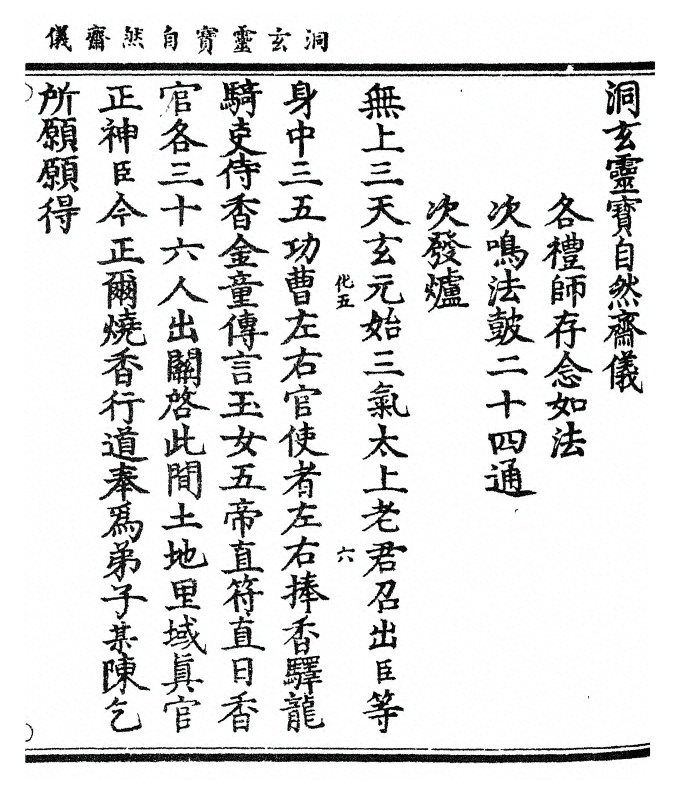 洞玄靈寶自然齋儀
洞玄靈寶自然齋儀
各禮師存念如法
次鳴法鼓二十四通
次發爐
無上三天玄元始三氣太上老君召出臣等
化五
六
身中三五功曹左右官使者左右捧香驛龍
騎吏侍香金童傳言玉女五帝直符直日香
官各三十六人出關啓此間土地里域眞官
正神臣今正爾燒香行道奉爲弟子某陳乞
所願願得